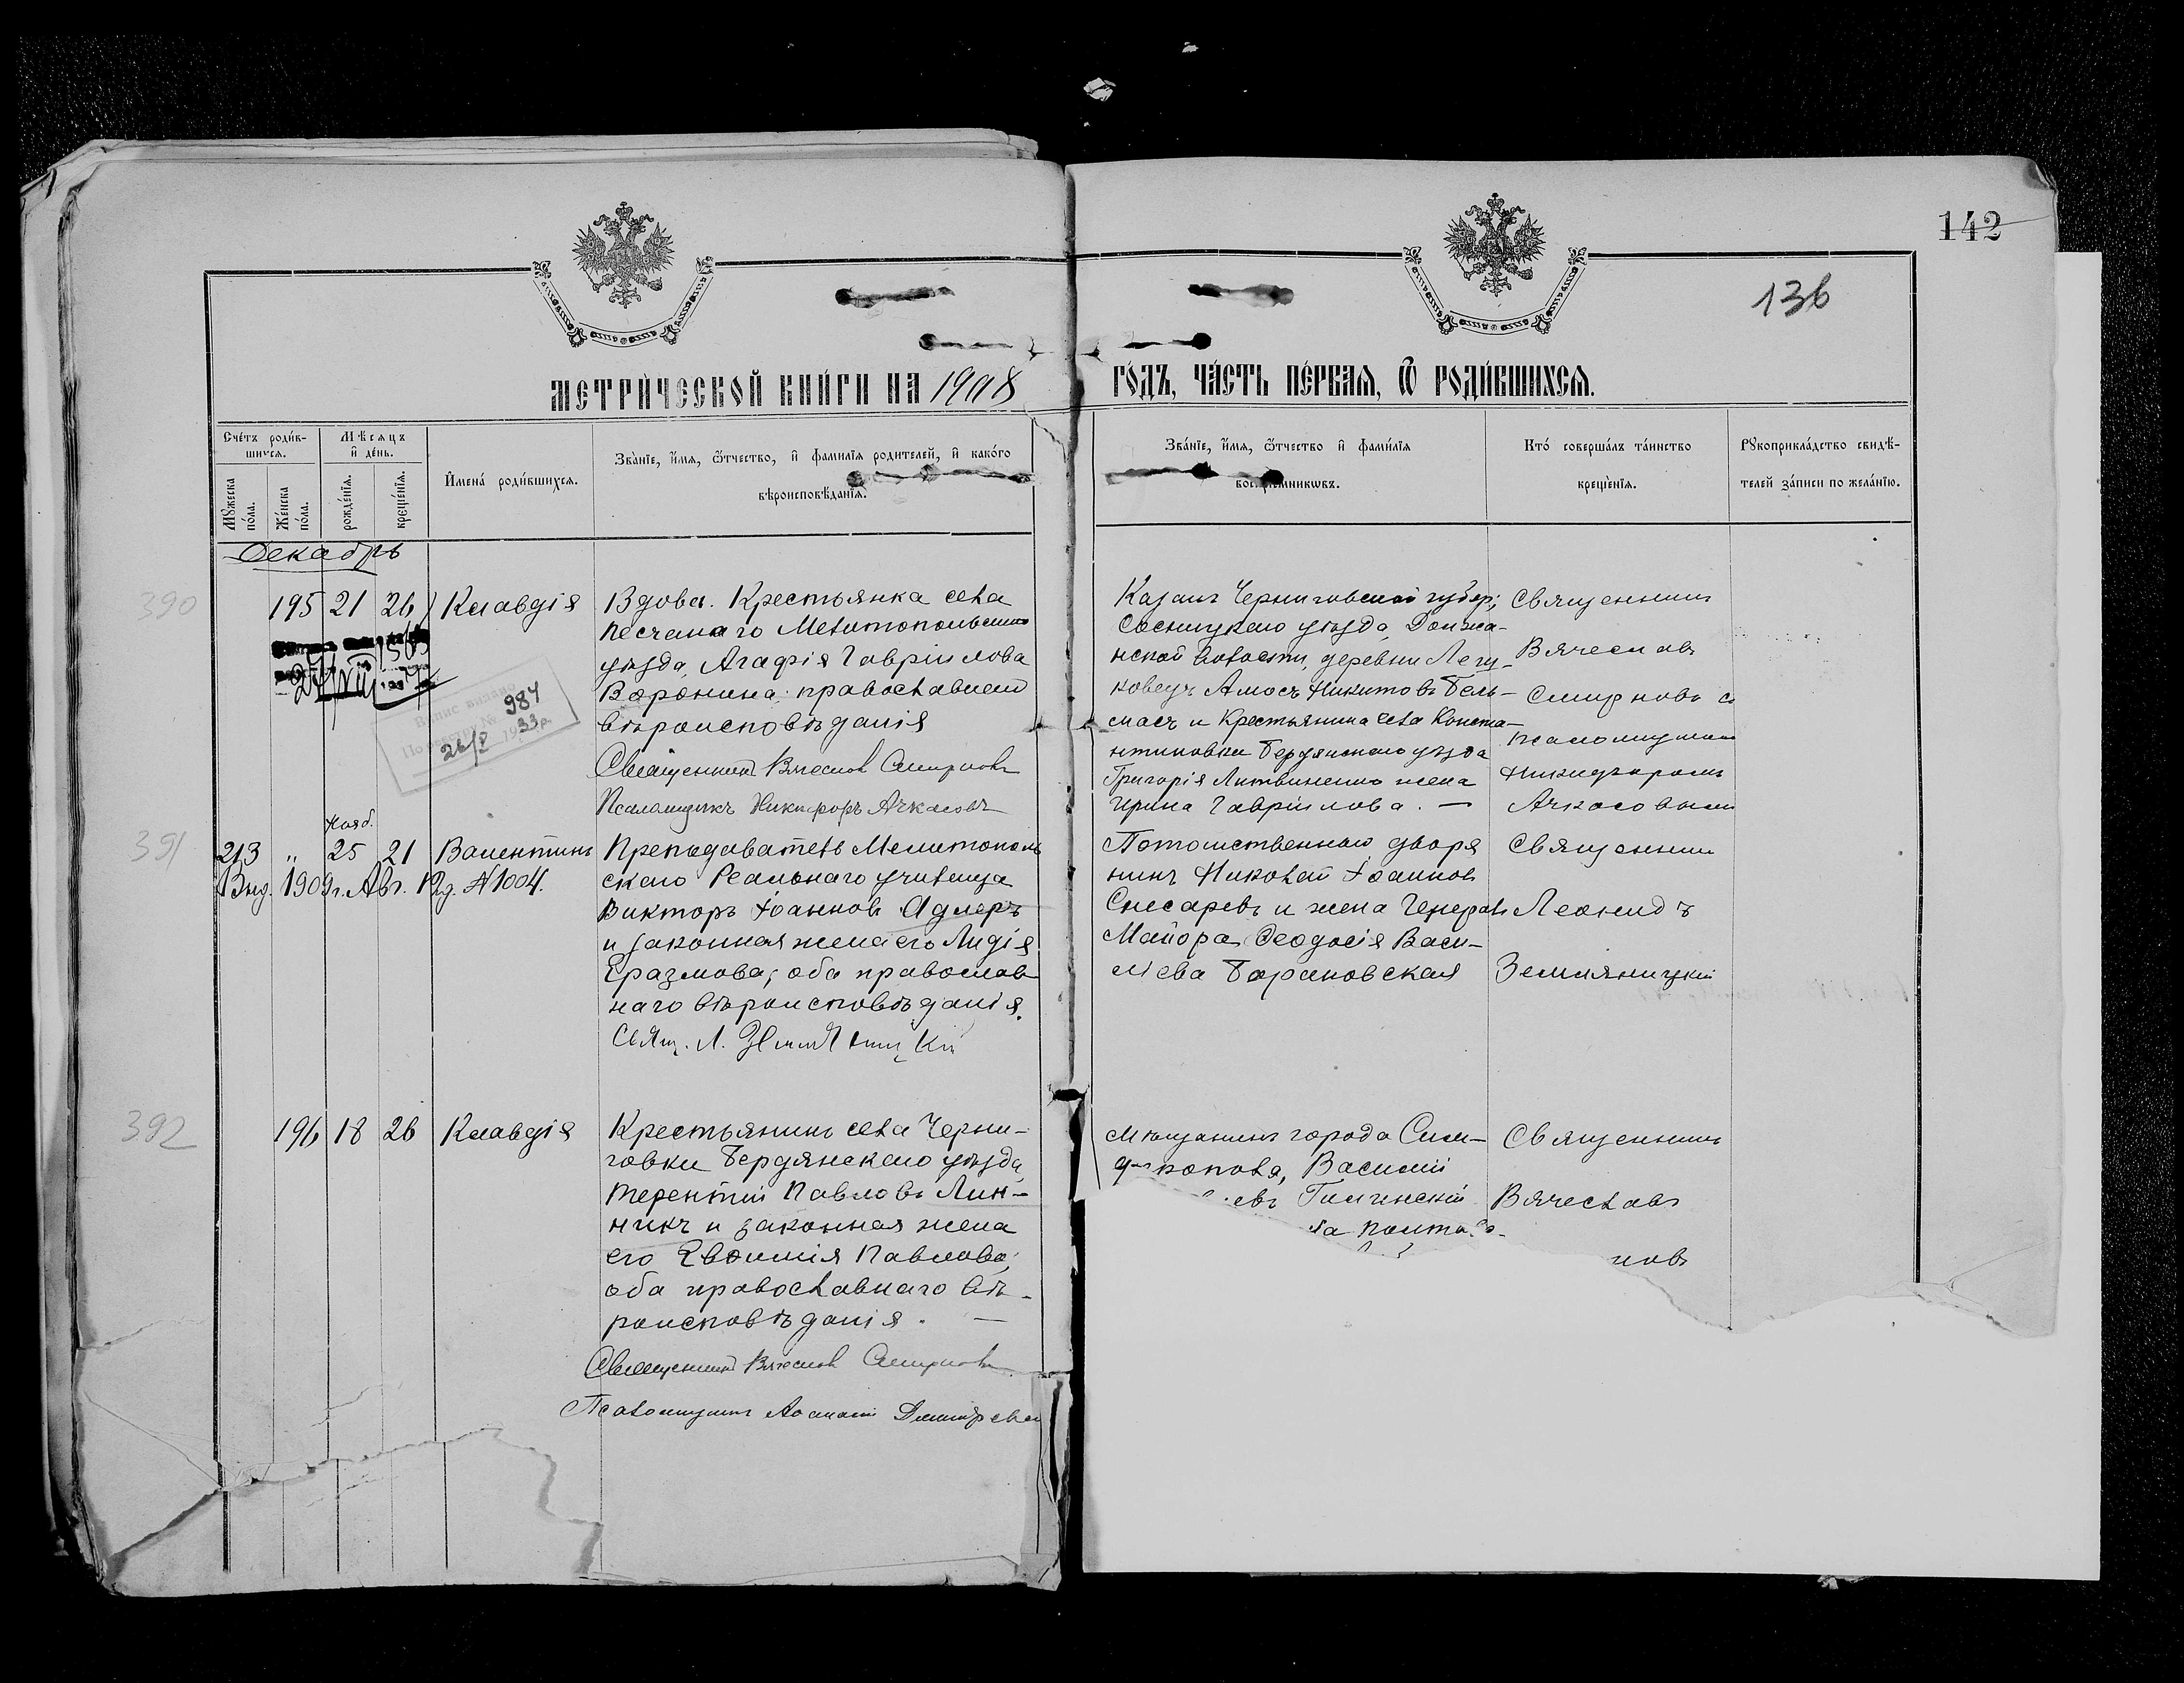 142
136
МЕТРИ́ЧЕСКОЙ КНИ́ГИ НА 1908
ГО́ДЪ, ЧА́СТЬ ПЕ́РВАЯ, Ѿ РОДИ́ВШИХСЯ.
Сче́тъ роди́в-
шихся.
Мꙋ́жеска по́ла.
Же́нска по́ла.
Мѣ́сяцъ и҆ де́нь.
рожде́нїѧ.
креще́нїѧ.
И҆мена̀ роди́вшихсѧ.
Зва́нїе, и҆́мѧ, ѻ҆́тчество, и҆ фами́лїѧ роди́телей, и҆ како́го
вѣроисповѣ́данїѧ.
Зва́нїе, и҆́мѧ, ѻ҆́тчество и҆ фами́лїѧ
воспрїе́мникѡвъ.
Кто̀ соверша́лъ та́инство
креще́нїѧ.
Рꙋкоприкла́дство свидѣ́-
телей за́писи по жела́нїю.
Декабрь
390
195 21 26
Клавдія
Вдова. Крестьянка села
Песчанаго Мелитопольскаго
уѣзда, Агафія Гавріилова
Воронина; православнаго
вѣроисповѣданія
Священникъ Вячеславъ Смирновъ
Псаломщикъ Никифоръ Ачкасовъ
984
26/X 33 р.
Казакъ Черниговской губер;
Сосницкаго уѣзда,
нской волости, деревни
Амосъ Никитовъ Бель-
махъ и Крестьянина села Конста-
нтиновки Бердянскаго уѣзда
Григорія Литвиненко жена
Ирина Гавріилова. —
Священникъ
Вячеславъ
Смирновъ съ
псаломщикомъ
Никифоромъ
Ачкасовымъ
391
213 „ Нояб. 25 21
Выд. 1909 г. Авг. № 1004.
Валентинъ
Преподаватель Мелитополь
скаго Реальнаго училища
Викторъ Іоанновъ Адлеръ
и законная жена его Лидія
Еразмова; оба православ
наго вѣроисповѣданія.
Свящ. Л. Земляницкій
Потомственный дворя
нинъ Николай Іоанновъ
Снесаревъ и жена Генералъ
Майора Ѳеодосія Васи-
лiева Барановская
Священникъ
Леонидъ
Земляницкій
392
196 18 26
Клавдія
Крестьянинъ села Черни-
говки Бердянскаго уѣзда,
Терентій Павловъ Лин-
никъ и законная жена
его Евѳимія Павлова;
оба православнаго вѣ-
роисповѣданія. —
Священникъ Вячеславъ Смирновъ
Псаломщикъ
Мѣщанинъ города Сим-
ферополя, Василій
евъ
Полтав-
Священникъ
Вячеславъ
новъ